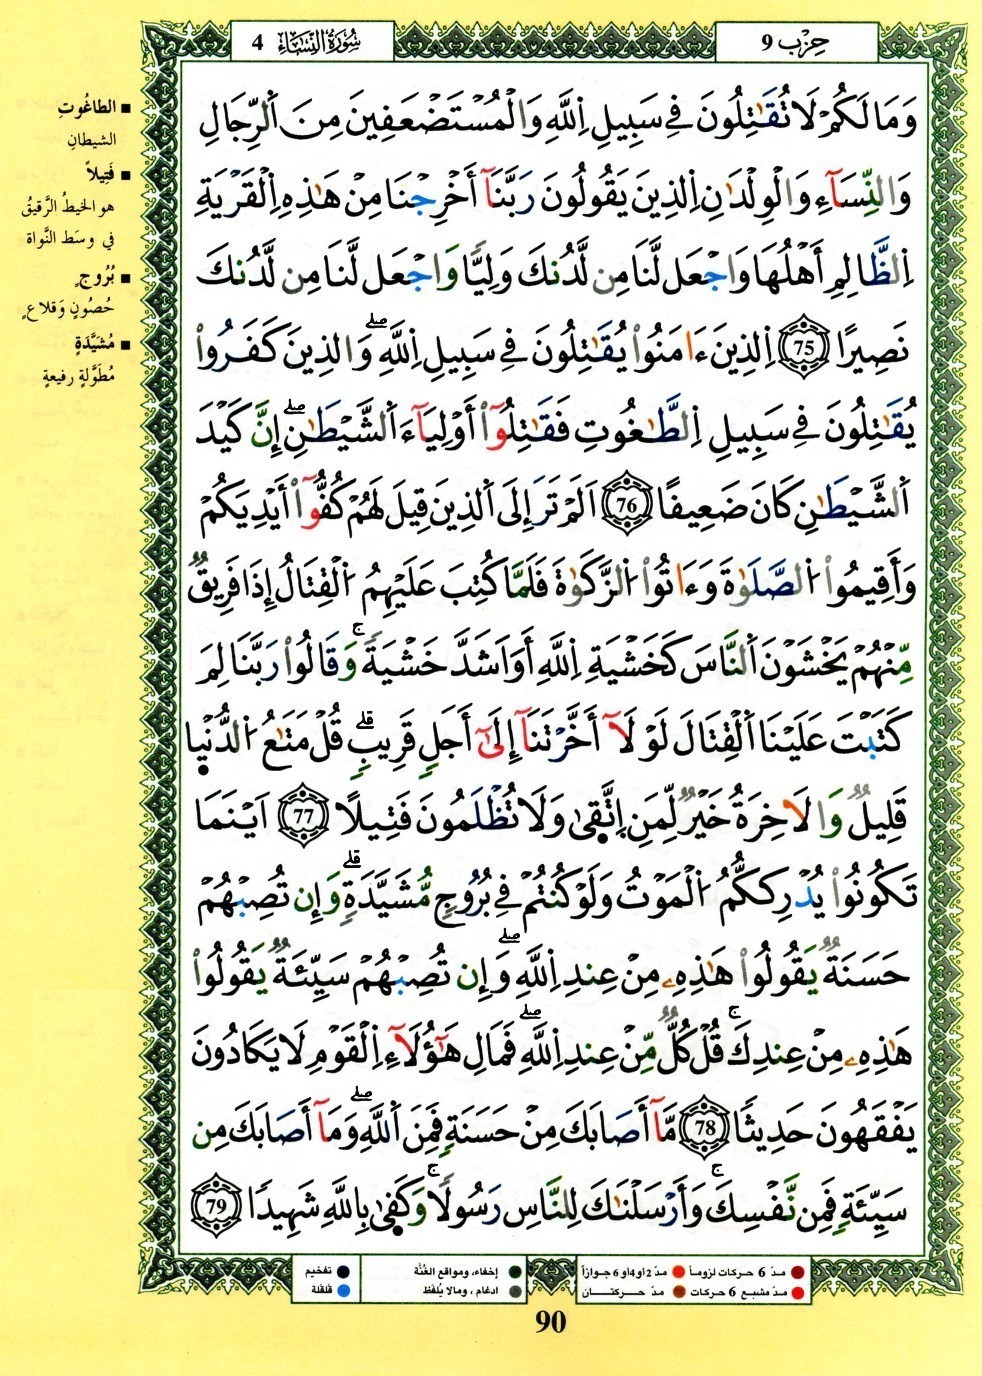 حِزْب 9
سُورَةُ النِّسَاء 4
وَمَا لَكُمْ لَا تُقَٰتِلُونَ فِے سَبِيلِ اِ۬للَّهِ وَالْمُسْتَضْعَفِينَ مِنَ اَ۬لرِّجَالِ
وَالنِّسَآءِ وَالْوِلْدَٰنِ اِ۬لذِينَ يَقُولُونَ رَبَّنَآ أَخْرِجْنَا مِنْ هَٰذِهِ اِ۬لْقَرْيَةِ
اِ۬لظَّالِمِ أَهْلُهَا وَاجْعَل لَّنَا مِن لَّدُنكَ وَلِيّٗا وَاجْعَل لَّنَا مِن لَّدُنكَ
نَصِيرًا 75 اِ۬لذِينَ ءَامَنُواْ يُقَٰتِلُونَ فِے سَبِيلِ اِ۬للَّهِۖ وَالذِينَ كَفَرُواْ
يُقَٰتِلُونَ فِے سَبِيلِ اِ۬لطَّٰغُوتِ فَقَٰتِلُوٓاْ أَوْلِيَآءَ اَ۬لشَّيْطَٰنِۖ إِنَّ كَيْدَ
اَ۬لشَّيْطَٰنِ كَانَ ضَعِيفًا 76 اَلَمْ تَرَ إِلَى اَ۬لذِينَ قِيلَ لَهُمْ كُفُّوٓاْ أَيْدِيَكُمْ
وَأَقِيمُواْ اُ۬لصَّلَوٰةَ وَءَاتُواْ اُ۬لزَّكَوٰةَ فَلَمَّا كُتِبَ عَلَيْهِمُ اُ۬لْقِتَالُ إِذَا فَرِيقٞ
مِّنْهُمْ يَخْشَوْنَ اَ۬لنَّاسَ كَخَشْيَةِ اِ۬للَّهِ أَوَ اَشَدَّ خَشْيَةٗۚ وَقَالُواْ رَبَّنَا لِمَ
كَتَبْتَ عَلَيْنَا اَ۬لْقِتَالَ لَوْلَآ أَخَّرْتَنَآ إِلَىٰٓ أَجَلٖ قَرِيبٖۗ قُلْ مَتَٰعُ اُ۬لدُّنْي۪ا
قَلِيلٞ وَالَاخِرَةُ خَيْرٞ لِّمَنِ اِ۪تَّق۪ىٰ وَلَا تُظْلَمُونَ فَتِيلًا 77 اَيْنَمَا
تَكُونُواْ يُدْرِككُّمُ اُ۬لْمَوْتُ وَلَوْ كُنتُمْ فِے بُرُوجٖ مُّشَيَّدَةٖۗ وَإِن تُصِبْهُمْ
حَسَنَةٞ يَقُولُواْ هَٰذِهِۦ مِنْ عِندِ اِ۬للَّهِۖ وَإِن تُصِبْهُمْ سَيِّئَةٞ يَقُولُواْ
هَٰذِهِۦ مِنْ عِندِكَۚ قُلْ كُلّٞ مِّنْ عِندِ اِ۬للَّهِۖ فَمَالِ هَٰٓؤُلَآءِ اِ۬لْقَوْمِ لَا يَكَادُونَ
يَفْقَهُونَ حَدِيثٗا 78 مَّآ أَصَابَكَ مِنْ حَسَنَةٖ فَمِنَ اَ۬للَّهِۖ وَمَآ أَصَابَكَ مِن
سَيِّئَةٖ فَمِن نَّفْسِكَۚ وَأَرْسَلْنَٰكَ لِلنَّاسِ رَسُولٗاۚ وَكَف۪ىٰ بِاللَّهِ شَهِيدٗا 79
■ الطاغُوتِ
الشيطانِ
■ فَتِيلاً
هو الخيطُ الرَّقيقُ
في وسَط النَّواة
■ بُرُوجٍ
حُصُونٍ وَقلاعٍ
■ مُشَيَّدَةٍ
مُطَوَّلةٍ رفيعةٍ
● مدّ 6 حركات لزوماً ● مدّ 2 أو 4 أو 6 جوازاً ● إخفاء، ومواقع الغُنَّة ● تفخيم
● مدّ مشبع 6 حركات ● مدّ حركتـــان ● ادغام، ومالا يُلفَظ ● قلقلة
90